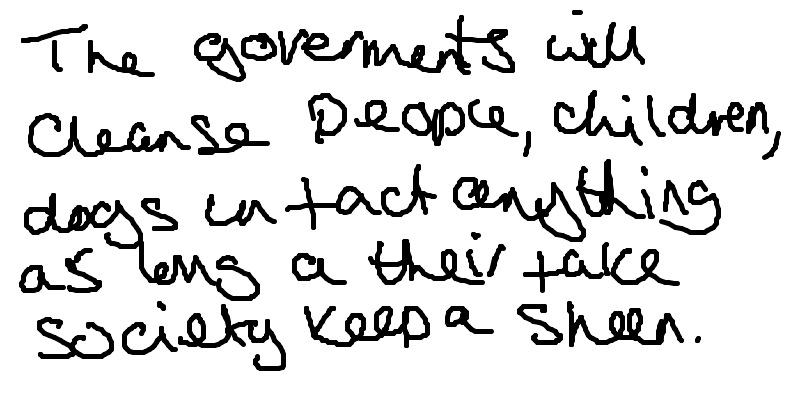 The goverments will
Cleanse People, children,
dogs in fact anything
as long a their fake
society keep a sheen.